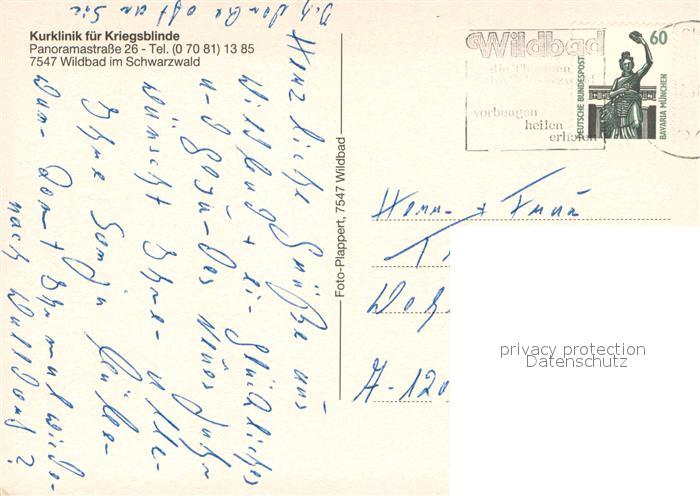 Ich denke oft an Sie
Kurklinik für Kriegsblinde
Panoramastraße 26 - Tel. (0 70 81) 13 85
7547 Wildbad im Schwarzwald
Herzliche Grüße aus
Wildbad + ein glückliches
und gesundes Neues Jahr
wünscht Ihnen
Ihre
Wann kommt Ihr mal wieder
nach Walldorf?
Foto-Plappert, 7547 Wildbad
Wildbad
die Thermen
vorbeugen
heilen
erholen
60
DEUTSCHE BUNDESPOST
BAVARIA MÜNCHEN
Herrn + Frau
A-120
privacy protection
Datenschutz